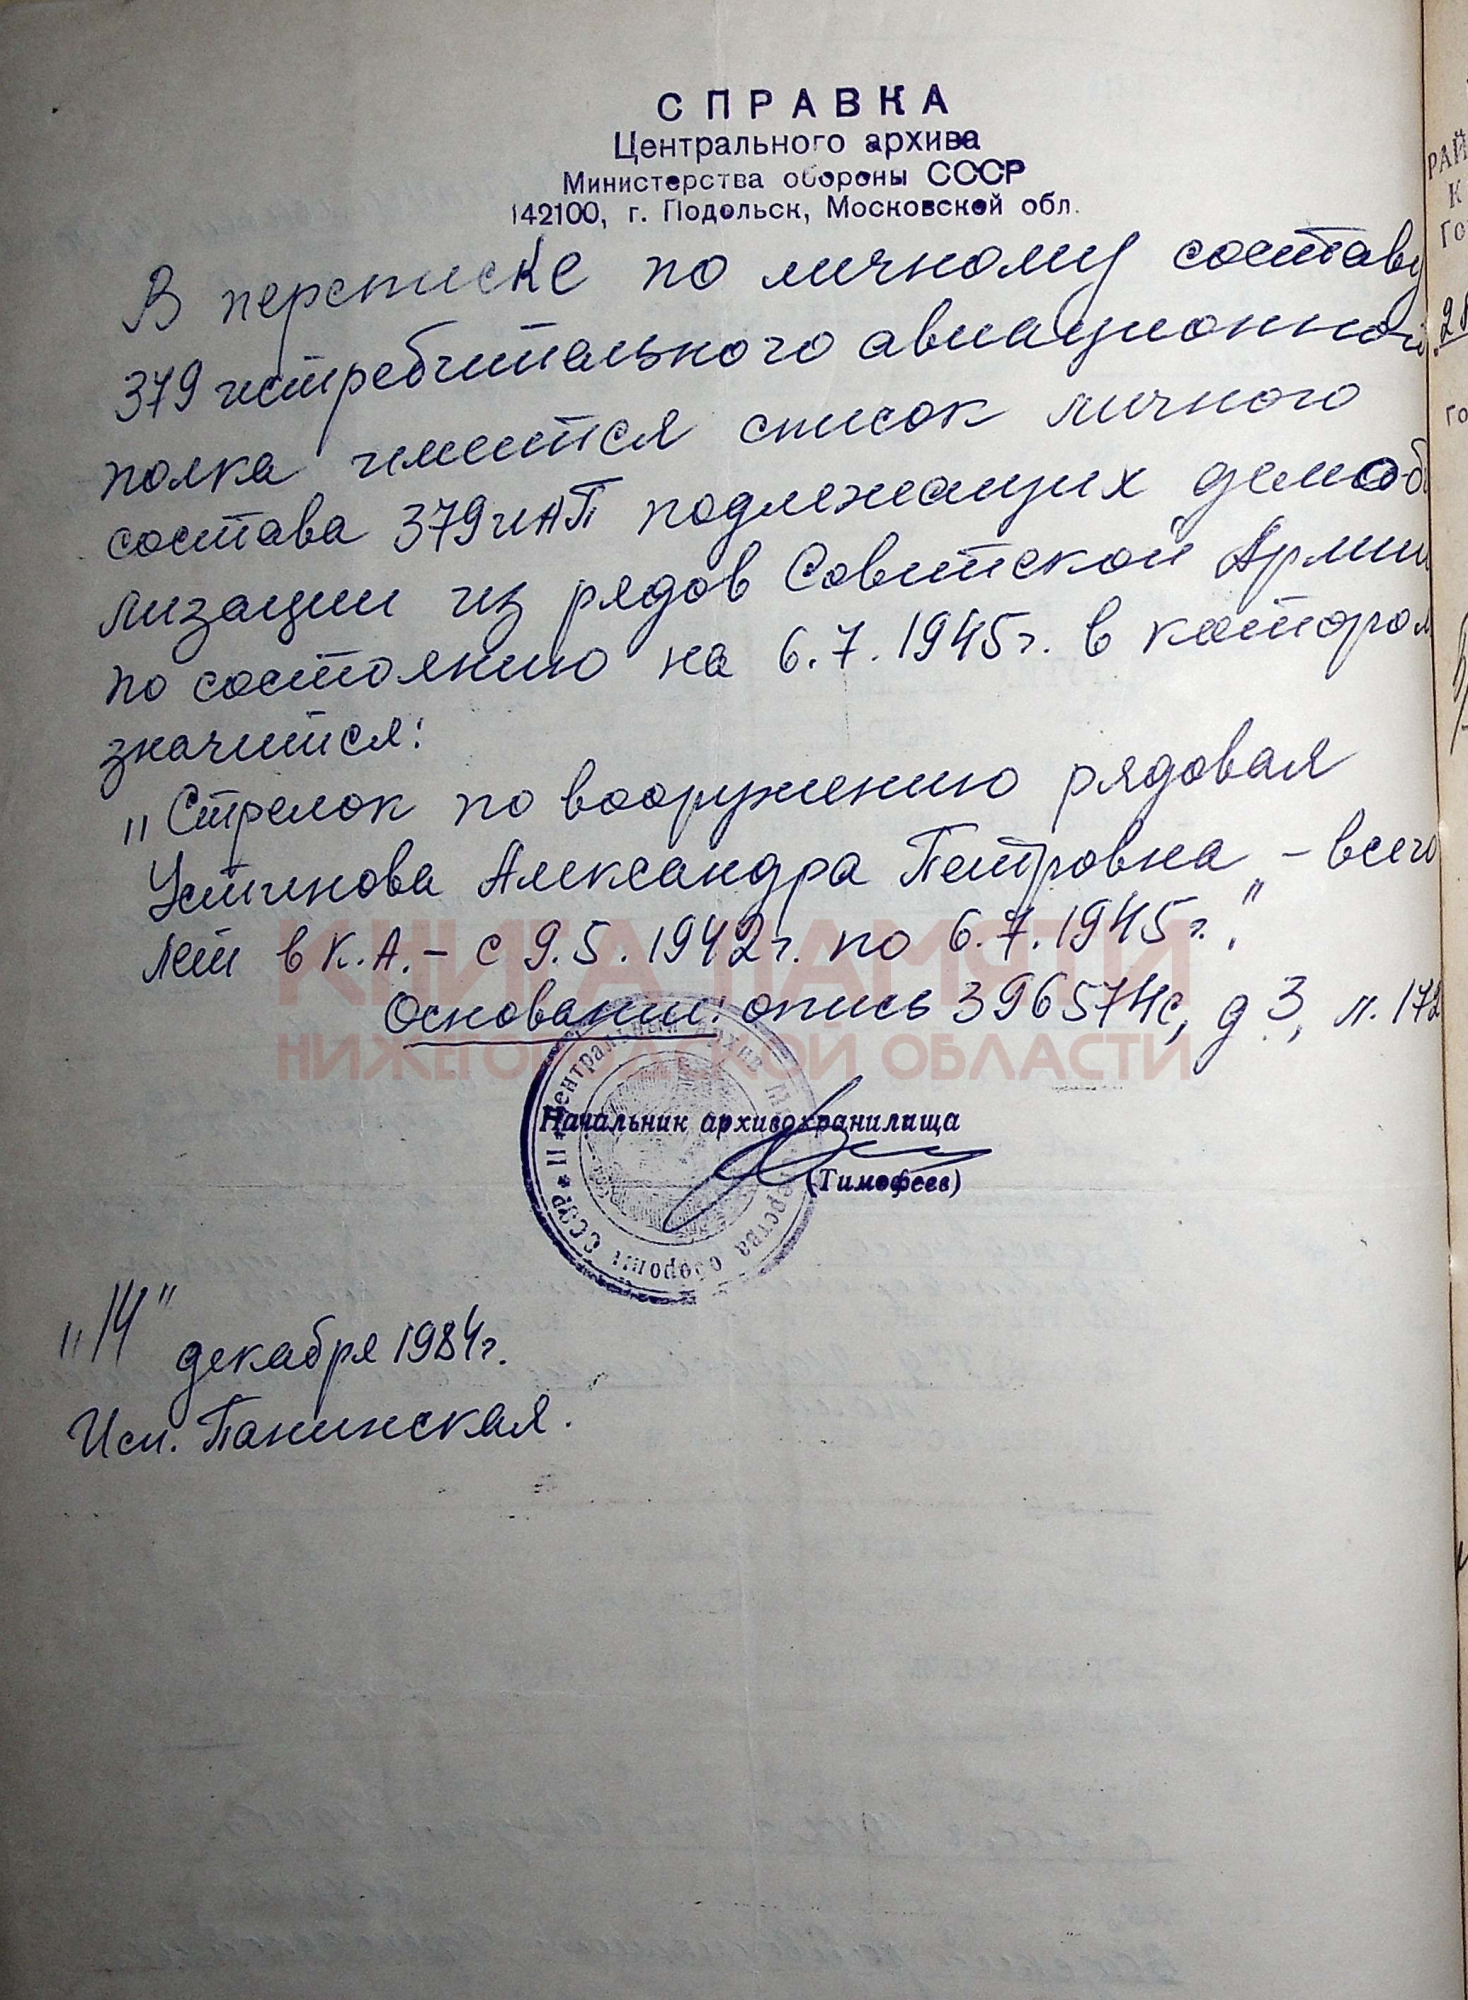 СПРАВКА
Центрального архива
Министерства обороны СССР
142100, г. Подольск, Московской обл.
В переписке по личному составу
379 истребительного авиационной
полка имеется список личного
состава 379 иАП подлежащих демоби
лизации из рядов Советской Армии
по состоянию на 6.7.1945г. в котором
значится:
"Стрелок по вооружению рядовая
Устинова Александра Петровна - всего
лет в К.А. - с 9.5.1942г. по 6.7.1945г."
Основании: опись 396574с, д 3, л. 172
КНИГА ПАМЯТИ
НИЖЕГОРОДСКОЙ ОБЛАСТИ
Центральный архив Министерства обороны СССР * II *
Начальник архивохранилища
(Тимофеев)
"14" декабря 1984г.
Исп. Панинская.
РАЙ
К
ГО